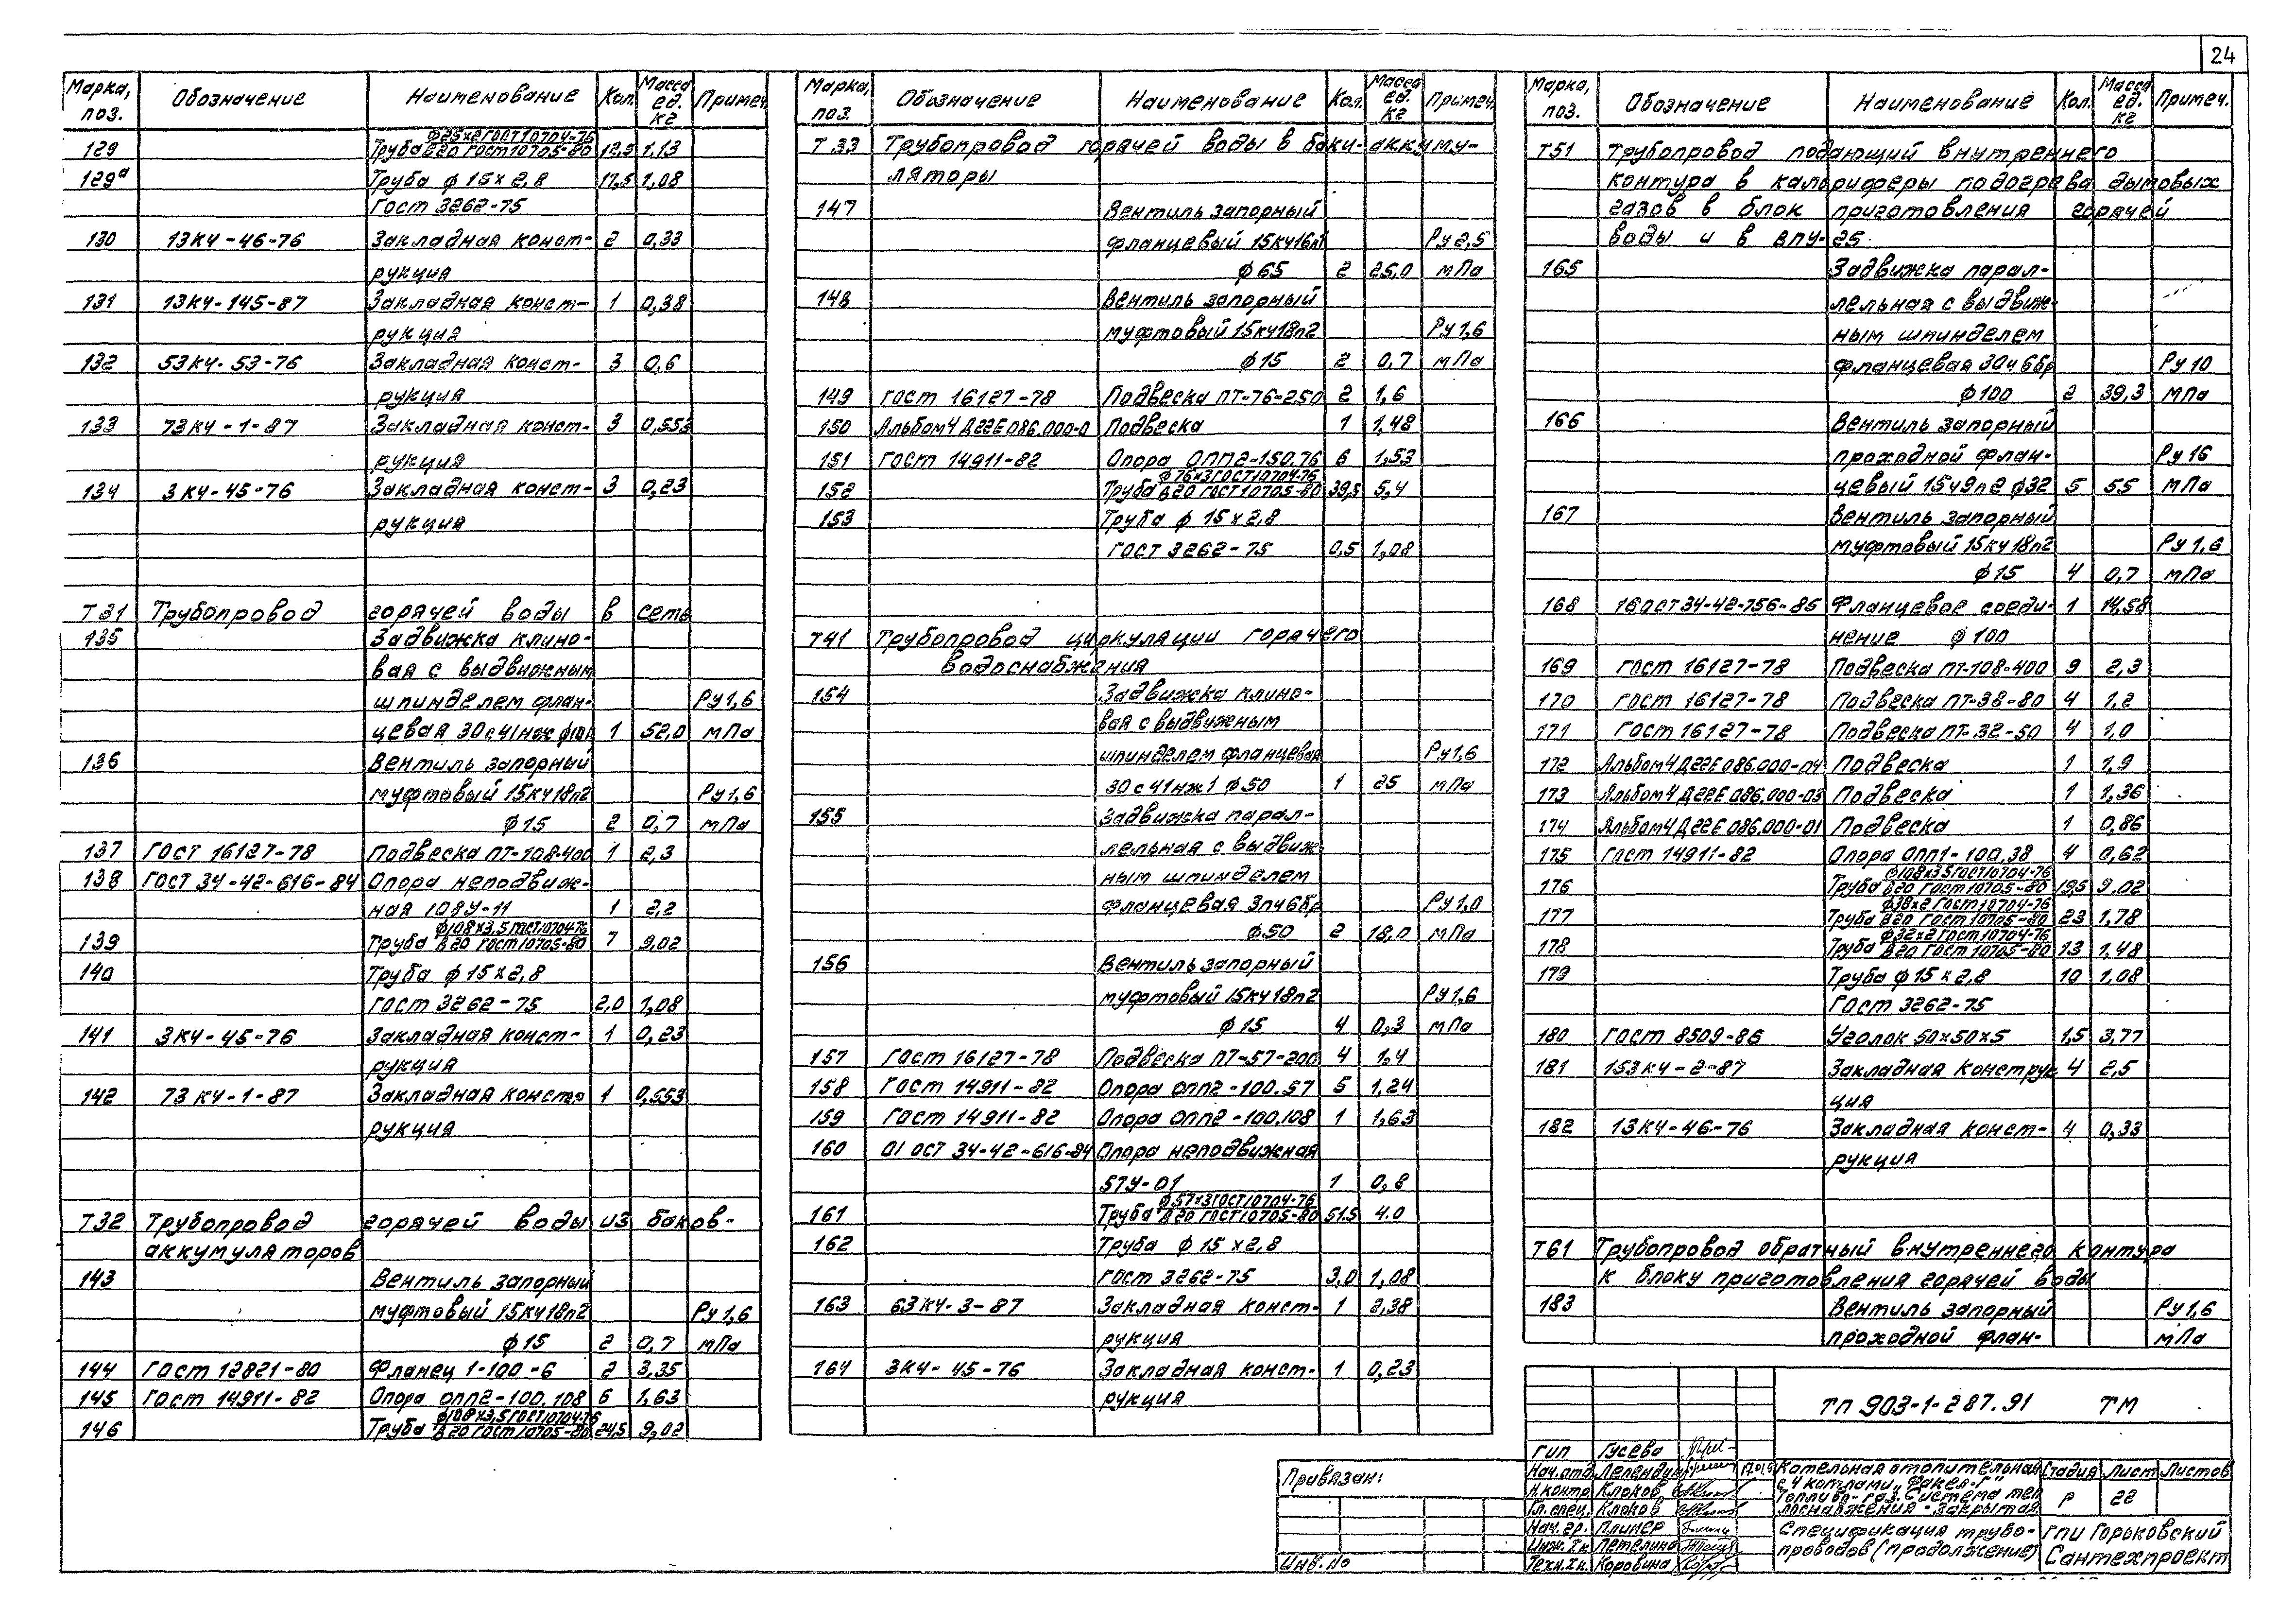 24
Марка, поз. Обозначение Наименование Кол. Масса ед. кг Примеч.
129 Труба ф25х2 ГОСТ 10704-76 / В20 ГОСТ 10705-80 12,9 1,13
129а Труба ф 15 х 2,8 17,5 1,08
Гост 3262-75
130 13КЧ-46-76 Закладная конст- 2 0,33
рукция
131 13КЧ-145-87 Закладная конст- 1 0,38
рукция
132 53КЧ-53-76 Закладная конст- 3 0,6
рукция
133 73КЧ-1-87 Закладная конст- 3 0,553
рукция
134 3КЧ-45-76 Закладная конст- 3 0,23
рукция
Т31 Трубопровод горячей воды в сеть
135 Задвижка клино-
вая с выдвижным
шпинделем флан- Ру1,6
цевая 30с41нж 1 52,0 мПа
136 Вентиль запорный
муфтовый 15кч18п2 Ру1,6
ф15 2 0,7 мПа
137 ГОСТ 16127-78 Подвеска ПТ-108-400 1 2,3
138 ГОСТ 34-42-616-84 Опора неподвиж-
ная 108У-11 1 2,2
139 Труба ф108х3,5 ГОСТ 10704-76 / В20 ГОСТ 10705-80 7 9,02
140 Труба ф 15 х 2,8
ГОСТ 3262-75 2,0 1,08
141 3КЧ-45-76 Закладная конст- 1 0,23
рукция
142 73КЧ-1-87 Закладная конст- 1 0,553
рукция
Т32 Трубопровод горячей воды из баков-
аккумуляторов
143 Вентиль запорный
муфтовый 15кч18п2 Ру1,6
ф15 2 0,7 мПа
144 ГОСТ 12821-80 Фланец 1-100-6 2 3,35
145 ГОСТ 14911-82 Опора ОПП2-100.108 6 1,63
146 Труба ф108х3,5 ГОСТ 10704-76 / В20 ГОСТ 10705-80 24,5 9,02
Марка, поз. Обозначение Наименование Кол. Масса ед. кг Примеч.
Т33 Трубопровод горячей воды в баки-аккуму-
ляторы
147 Вентиль запорный
фланцевый 15кч16п1 Ру2,5
ф65 2 25,0 мПа
148 Вентиль запорный
муфтовый 15кч18п2 Ру1,6
ф15 2 0,7 мПа
149 ГОСТ 16127-78 Подвеска ПТ-76-250 2 1,6
150 Альбом 4 Д22Е086.000-0 Подвеска 1 1,48
151 ГОСТ 14911-82 Опора ОПП2-150.76 6 1,53
152 Труба ф76х3 ГОСТ 10704-76 / В20 ГОСТ 10705-80 39,5 5,4
153 Труба ф 15 х 2,8
ГОСТ 3262-75 0,5 1,08
Т41 Трубопровод циркуляции горячего
водоснабжения
154 Задвижка клино-
вая с выдвижным
шпинделем фланцевая Ру1,6
30с41нж1 ф50 1 25 мПа
155 Задвижка парал-
лельная с выдвиж-
ным шпинделем
фланцевая 3ч6бр Ру1,0
ф50 2 18,0 мПа
156 Вентиль запорный
муфтовый 15кч18п2 Ру1,6
ф15 4 0,3 мПа
157 ГОСТ 16127-78 Подвеска ПТ-57-200 4 1,4
158 ГОСТ 14911-82 Опора ОПП2-100.57 5 1,24
159 ГОСТ 14911-82 Опора ОПП2-100.108 1 1,63
160 01 ОСТ 34-42-616-84 Опора неподвижная
57У-01 1 0,8
161 Труба ф57х3 ГОСТ 10704-76 / В20 ГОСТ 10705-80 51,5 4.0
162 Труба ф 15 х 2,8
ГОСТ 3262-75 3,0 1,08
163 63КЧ-3-87 Закладная конст- 1 2,38
рукция
164 3КЧ-45-76 Закладная конст- 1 0,23
рукция
Марка, поз. Обозначение Наименование Кол. Масса ед. кг Примеч.
Т51 Трубопровод подающий внутреннего
контура в калориферы подогрева дымовых
газов в блок приготовления горячей
воды и в ВПУ-25
165 Задвижка парал-
лельная с выдвиж-
ным шпинделем
фланцевая 30ч6бр Ру10
ф100 2 39,3 мПа
166 Вентиль запорный
проходной флан- Ру16
цевый 15ч9п2 ф32 5 55 мПа
167 Вентиль запорный
муфтовый 15кч18п2 Ру1,6
ф15 4 0,7 мПа
168 16ОСТ34-42-756-85 Фланцевое соеди- 1 14,58
нение ф100
169 ГОСТ 16127-78 Подвеска ПТ-108-400 9 2,3
170 ГОСТ 16127-78 Подвеска ПТ-38-80 4 1,2
171 ГОСТ 16127-78 Подвеска ПТ-32-50 4 1,0
172 Альбом 4 Д22Е086.000-04 Подвеска 1 1,9
173 Альбом 4 Д22Е086.000-03 Подвеска 1 1,36
174 Альбом 4 Д22Е086.000-01 Подвеска 1 0,86
175 ГОСТ 14911-82 Опора ОПП1-100.38 4 0,62
176 Труба ф108х3,5 ГОСТ 10704-76 / В20 ГОСТ 10705-80 19,5 9.02
177 Труба ф38х2 ГОСТ 10704-76 / В20 ГОСТ 10705-80 23 1,78
178 Труба ф32х2 ГОСТ 10704-76 / В20 ГОСТ 10705-80 13 1,48
179 Труба ф 15 х 2,8 10 1.08
ГОСТ 3262-75
180 ГОСТ 8509-86 Уголок 50х50х5 1,5 3,77
181 153КЧ-2-87 Закладная конструк 4 2,5
ция
182 13КЧ-46-76 Закладная конст- 4 0,33
рукция
Т61 Трубопровод обратный внутреннего контура
к блоку приготовления горячей воды
183 Вентиль запорный Ру1,6
проходной флан- мПа
Привязан:
Инв. №
ТП 903-1-287.91 ТМ
ГИП Гусева
Нач.отд. Лепендин
Н.контр. Клоков
Гл.спец. Клоков
Нач.гр. Плинер
Инж.Iк. Петелина
Техн.Iк. Коровина
Котельная отопительная
с 4 котлами „Факел-Г"
Топливо-газ. Система теп
лоснабжения-закрытая
Стадия Лист Листов
Р 22
Спецификация трубо-
проводов (продолжение)
ГПИ Горьковский
Сантехпроект